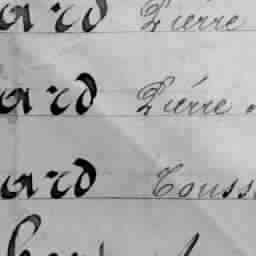 ard Pierre
ard Pierre
ard Touss